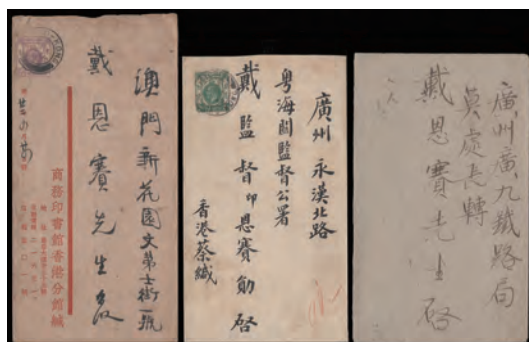 澳門新花園文第士街一號
戴恩賽先生啟
商務印書館香港分館緘
廣州永漢北路
粵海關監督公署
戴監督印恩賽勛啓
香港蔡緘
廣州廣九鐵路局
莫處長轉
戴恩賽先生啓